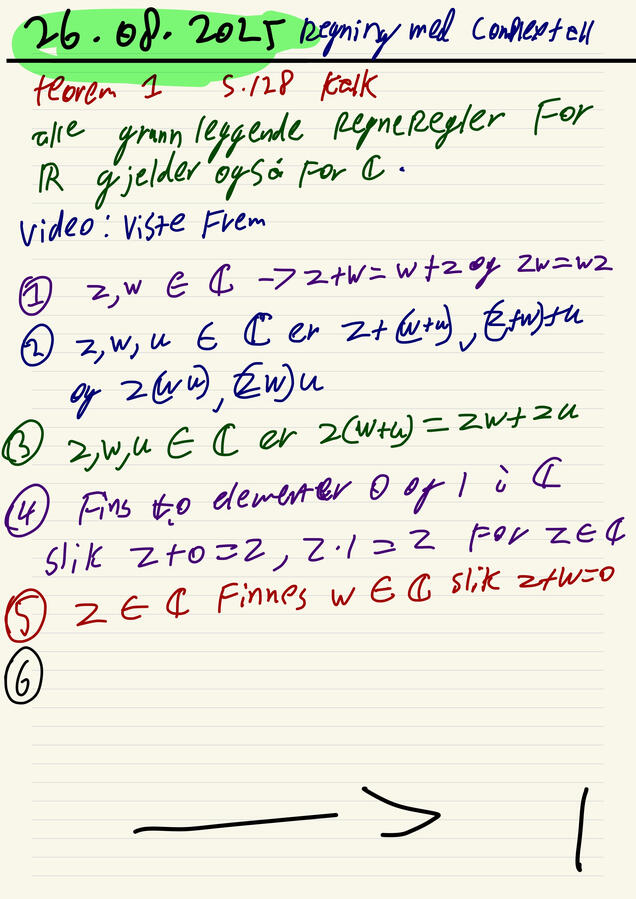 26.08.2025 Regning med Complextall
teorem 1 S.128 Kalk
alle grunnleggende RegneRegler For
ℝ gjelder også For ℂ.
Video: Viste Frem
① z,w ∈ ℂ -> z+w = w+z og zw=wz
② z,w,u ∈ ℂ er z+(w+u), (z+w)+u
og z(wu), (zw)u
③ z,w,u ∈ ℂ er z(w+u) = zw+zu
④ Fins to elementer 0 og 1 i ℂ
slik z+0=z, z·1=z For z∈ℂ
⑤ z ∈ ℂ Finnes w ∈ ℂ slik z+w=0
⑥
—> |